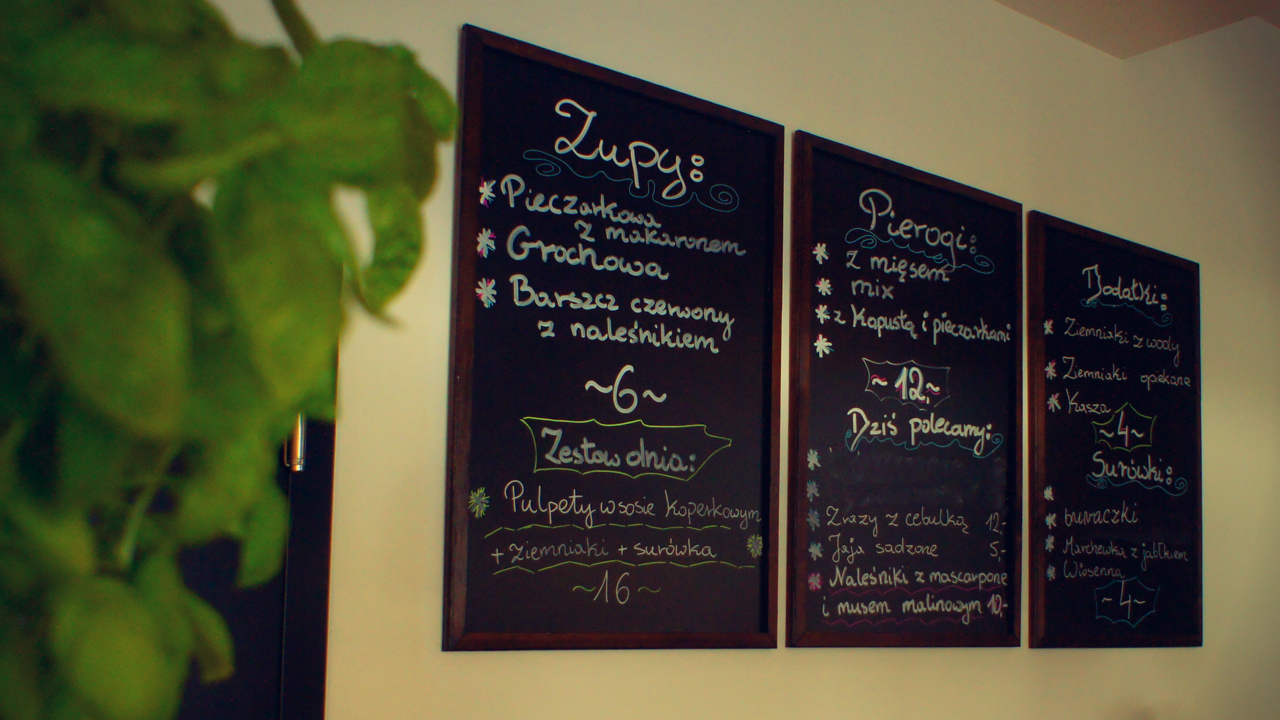 Zupy:
* Pieczarkowa
z makaronem
* Grochowa
* Barszcz czerwony
z naleśnikiem
~6~
Zestaw dnia:
* Pulpety w sosie koperkowym
+ ziemniaki + surówka *
~16~
Pierogi:
* z mięsem
* mix
* z kapustą i pieczarkami
*
~12,~
Dziś polecamy:
*
*
* Zrazy z cebulką 12,-
* Jaja sadzone 5,-
* Naleśniki z mascarpone
i musem malinowym 10,-
Dodatki:
* Ziemniaki z wody
* Ziemniaki opiekane
* Kasza
~4~
Surówki:
*
* buraczki
* Marchewka z jabłkiem
* Wiosenna
~4~